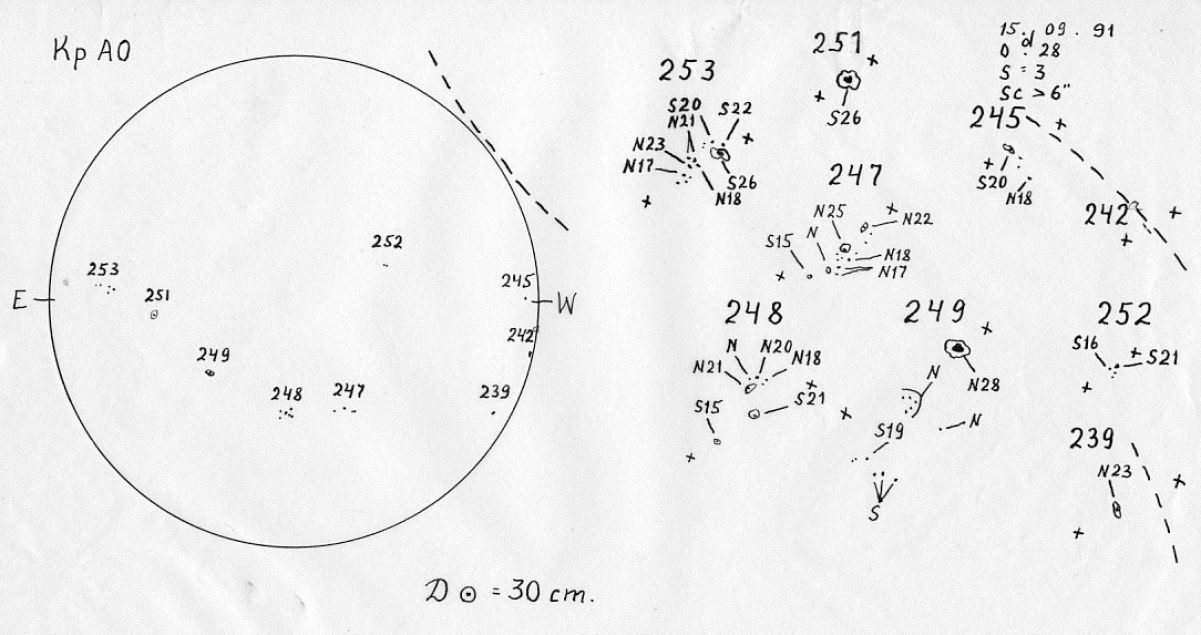 Кр АО
E
W
253
251
249
248
247
252
245
242
239
D ⊙ = 30 cm.
15. 09. 91
0 d. 28
S = 3
Sc > 6"
253
S20
S22
N21
N23
N17
S26
N18
251
S26
245
S20
N18
242
247
N25
N22
N
S15
N18
N17
248
N
N20
N18
N21
S21
S15
249
N28
N
N
S19
S
252
S16
S21
239
N23